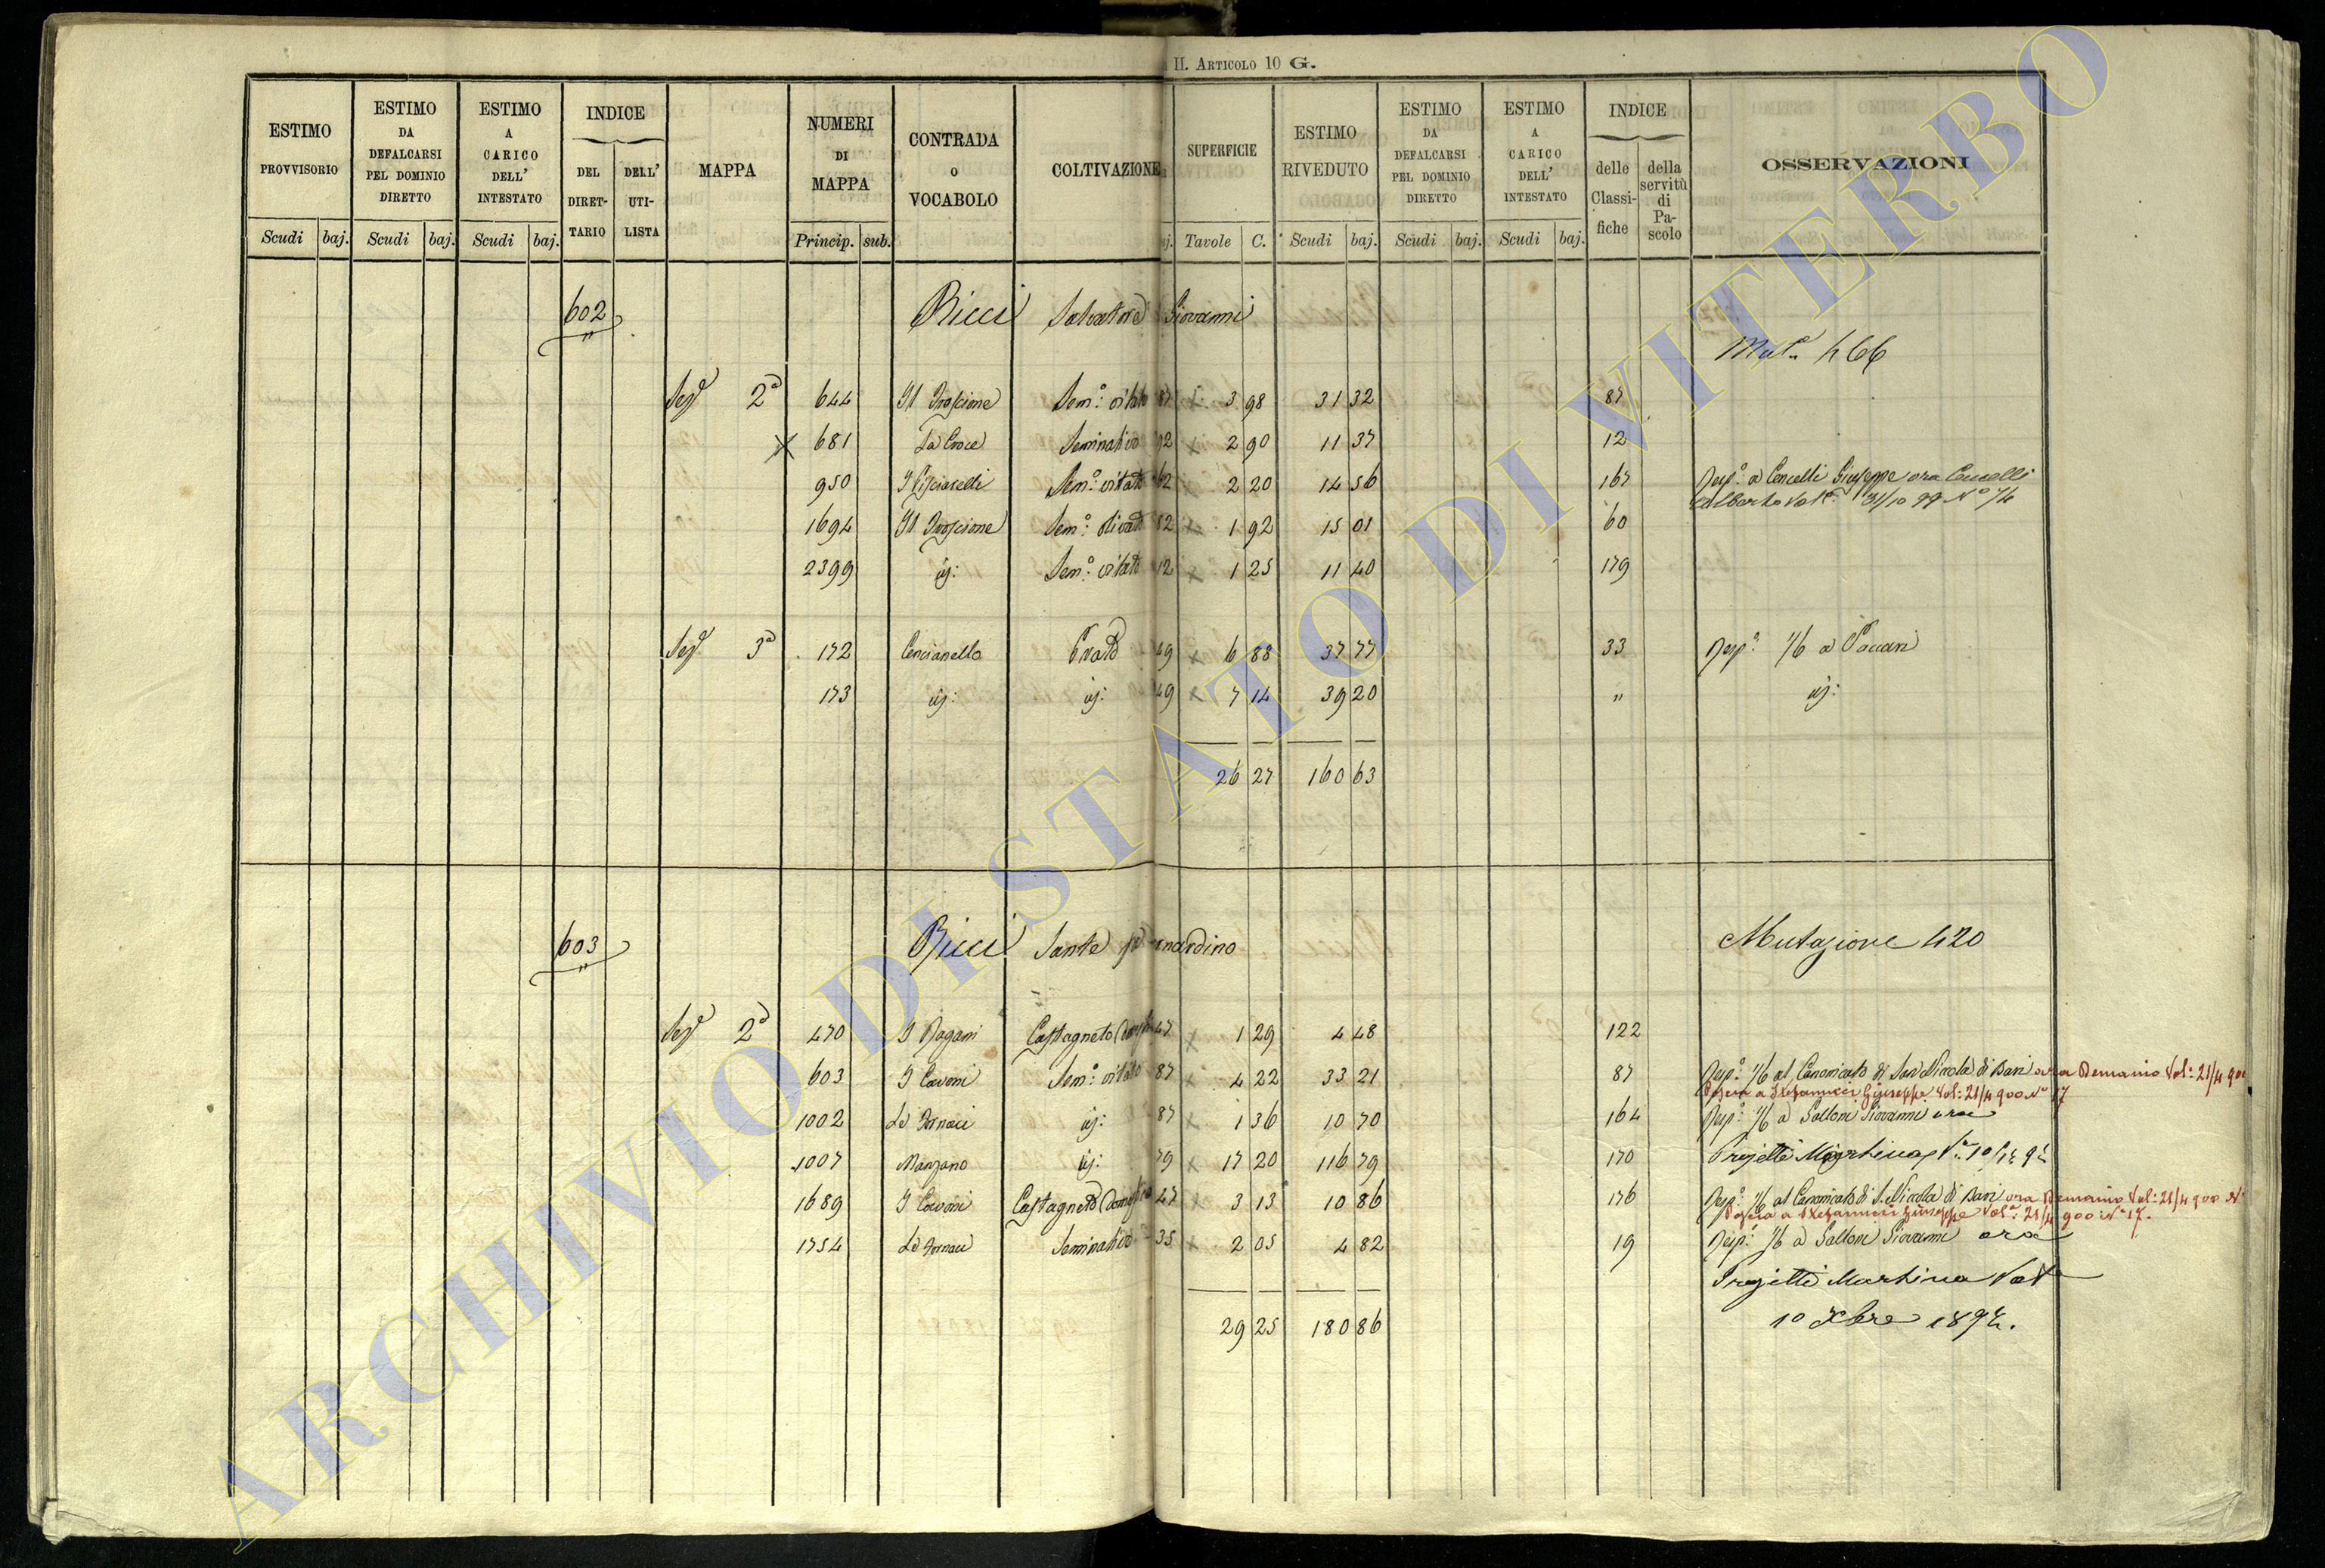 II. Articolo 10 G.
ESTIMO PROVVISORIO Scudi baj.
ESTIMO DA DEFALCARSI PEL DOMINIO DIRETTO Scudi baj.
ESTIMO A CARICO DELL' INTESTATO Scudi baj.
INDICE DEL DIRET-TARIO DELL' UTI-LISTA
MAPPA
NUMERI DI MAPPA Princip. sub.
CONTRADA O VOCABOLO
COLTIVAZIONE
SUPERFICIE Tavole C.
ESTIMO RIVEDUTO Scudi baj.
ESTIMO DA DEFALCARSI PEL DOMINIO DIRETTO Scudi baj.
ESTIMO A CARICO DELL' INTESTATO Scudi baj.
INDICE delle Classi-fiche della servitù di Pa-scolo
OSSERVAZIONI
602 Ricci Salvatore Giovanni
Mut.e 466
Sez.e 2a 644 Sem.o vitato 87 3 98 31 32 87
X 681 La Croce Seminativo 92 2 90 11 37 12
950 Sem.o vitato 62 2 20 14 56 167 Risp.o a Cencelli Giuseppe ora Cencelli
Alberto Vol.a 31/10 99 No 74
1694 Sem.o olivato 82 1 92 15 01 60
2399 id: Sem.o vitato 12 1 25 11 40 179
Sez.e 3a 172 Cencianello Prato 49 6 88 37 77 33 Risp.o 1/6 a
173 id: id: 49 7 14 39 20 " id:
26 27 160 63
603 Ricci Sante nardino Mutazione 420
Sez.e 2a 470 I Pagani Castagneto 47 1 29 4 48 122
603 I Cavoni Sem.o vitato 87 4 22 33 21 87 Risp.o 1/6 al Canonicato di San Nicola di Bari ora Demanio Vol: 21/4 900
Poscia a Stefanucci Giuseppe Vol: 21/4 900 No 17
1002 Le Fornaci id: 87 1 36 10 70 164 Risp.o 1/6 a Salloni Giovanni ora
1007 Manzano id: 79 17 20 116 79 170 Projetti Martina
1689 I Cavoni Castagneto 47 3 13 10 86 176 Risp.o 1/6 al Canonicato di S. Nicola di Bari ora Demanio Vol: 21/4 900 No
Poscia a Stefanucci Giuseppe Vol.a: 21/4 900 No 17.
1754 Le Fornaci Seminativo 35 2 05 4 82 19 Risp.o 1/6 a Salloni Giovanni ora
Projetti Martina Vol.a
29 25 180 86 10 Xbre
ARCHIVIO DI STATO DI VITERBO